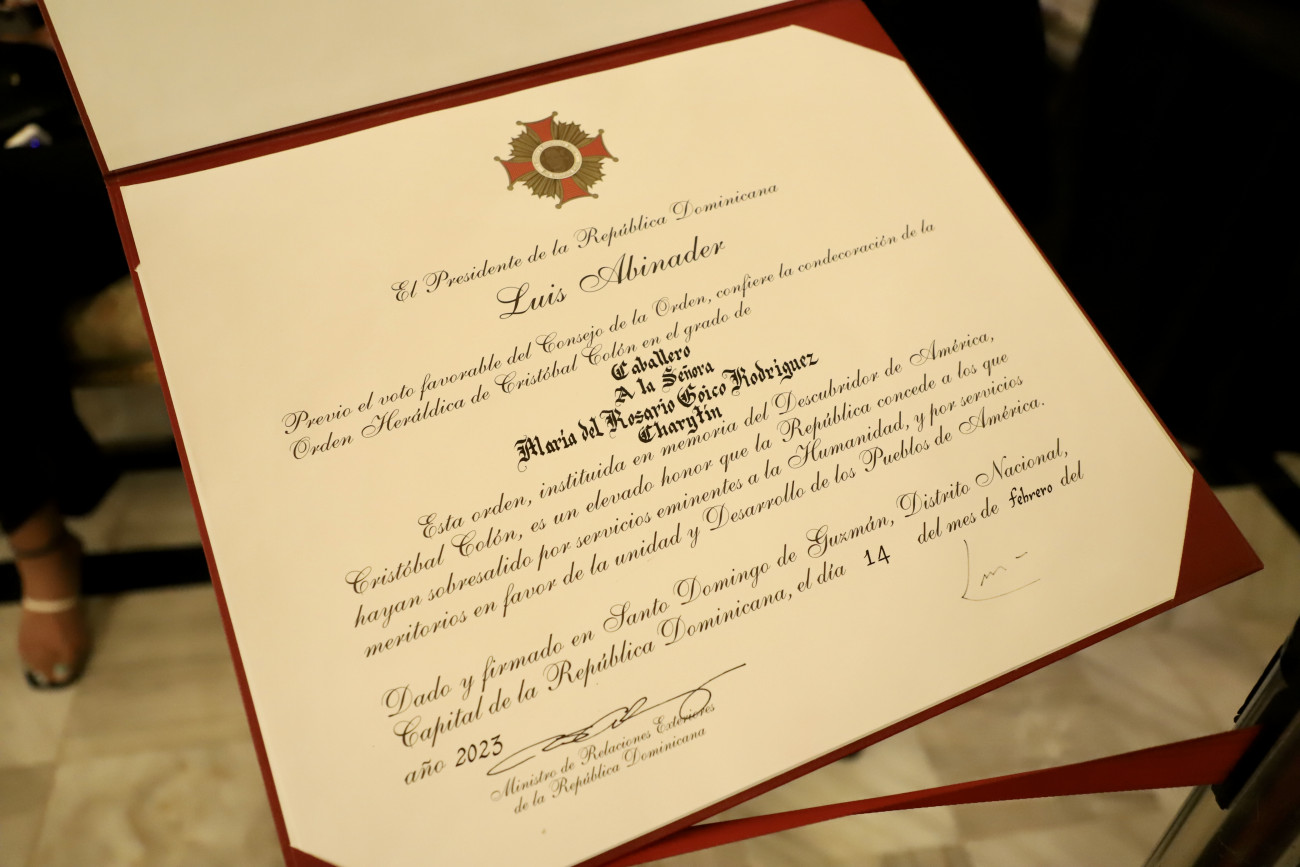 El Presidente de la República Dominicana
Luis Abinader
Previo el voto favorable del Consejo de la Orden, confiere la condecoración de la
Orden Heráldica de Cristóbal Colón en el grado de
Caballero
A la Señora
María del Rosario Goico Rodriguez
Charytín
Esta orden, instituida en memoria del Descubridor de América,
Cristóbal Colón, es un elevado honor que la República concede a los que
hayan sobresalido por servicios eminentes a la Humanidad, y por servicios
meritorios en favor de la unidad y Desarrollo de los Pueblos de América.
Dado y firmado en Santo Domingo de Guzmán, Distrito Nacional,
Capital de la República Dominicana, el día 14 del mes de febrero del
año 2023
Ministro de Relaciones Exteriores
de la República Dominicana